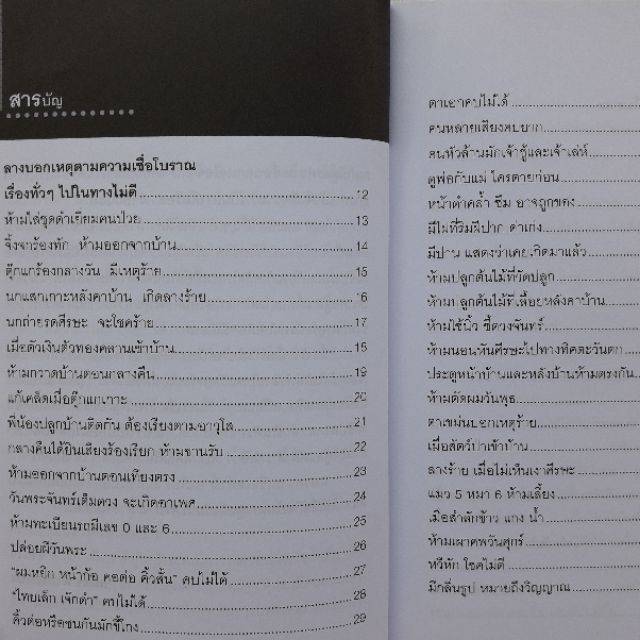 สารบัญ
ลางบอกเหตุตามความเชื่อโบราณ
เรื่องทั่วๆ ไปในทางไม่ดี 12
ห้ามใส่ชุดดำเยี่ยมคนป่วย 13
จิ้งจกร้องทัก ห้ามออกจากบ้าน 14
ตุ๊กแกร้องกลางวัน มีเหตุร้าย 15
นกแสกเกาะหลังคาบ้าน เกิดลางร้าย 16
นกถ่ายรดศีรษะ จะโชคร้าย 17
เมื่อตัวเงินตัวทองคลานเข้าบ้าน 18
ห้ามกวาดบ้านตอนกลางคืน 19
แก้เคล็ดเมื่อตุ๊กแกเกาะ 20
พี่น้องปลูกบ้านติดกัน ต้องเรียงตามอาวุโส 21
กลางคืนได้ยินเสียงร้องเรียก ห้ามขานรับ 22
ห้ามออกจากบ้านตอนเที่ยงตรง 23
วันพระจันทร์เต็มดวง จะเกิดอาเพศ 24
ห้ามทะเบียนรถมีเลข 0 และ 6 25
ปล่อยผีวันพระ 26
"ผมหยิก หน้าก้อ คอต่อ คิ้วสั้น" คบไม่ได้ 27
"ไทยเล็ก เจ๊กดำ" คบไม่ได้ 28
คิ้วต่อหรือชนกันมักขี้โกง 29
ตาเอกคบไม่ได้
คนหลายเสียงคบยาก
คนหัวล้านมักเจ้าชู้และเจ้าเล่ห์
ดูพ่อกับแม่ ใครตายก่อน
หน้าดำคล้ำ ซึม อาจถูกของ
มีไฝที่ริมฝีปาก ด่าเก่ง
มีปาน แสดงว่าเคยเกิดมาแล้ว
ห้ามปลูกต้นไม้ที่วัดปลูก
ห้ามปลูกต้นไม้ที่เลื้อยหลังคาบ้าน
ห้ามใช้นิ้ว ชี้ดวงจันทร์
ห้ามนอนหันศีรษะไปทางทิศตะวันตก
ประตูหน้าบ้านและหลังบ้านห้ามตรงกัน
ห้ามตัดผมวันพุธ
ตาเขม่นบอกเหตุร้าย
เมื่อสัตว์ป่าเข้าบ้าน
ลางร้าย เมื่อไม่เห็นเงาศีรษะ
แมว 5 หมา 6 ห้ามเลี้ยง
เมื่อสำลักข้าว แกง น้ำ
ห้ามเผาศพวันศุกร์
หวีหัก โชคไม่ดี
มีกลิ่นธูป หมายถึงวิญญาณ